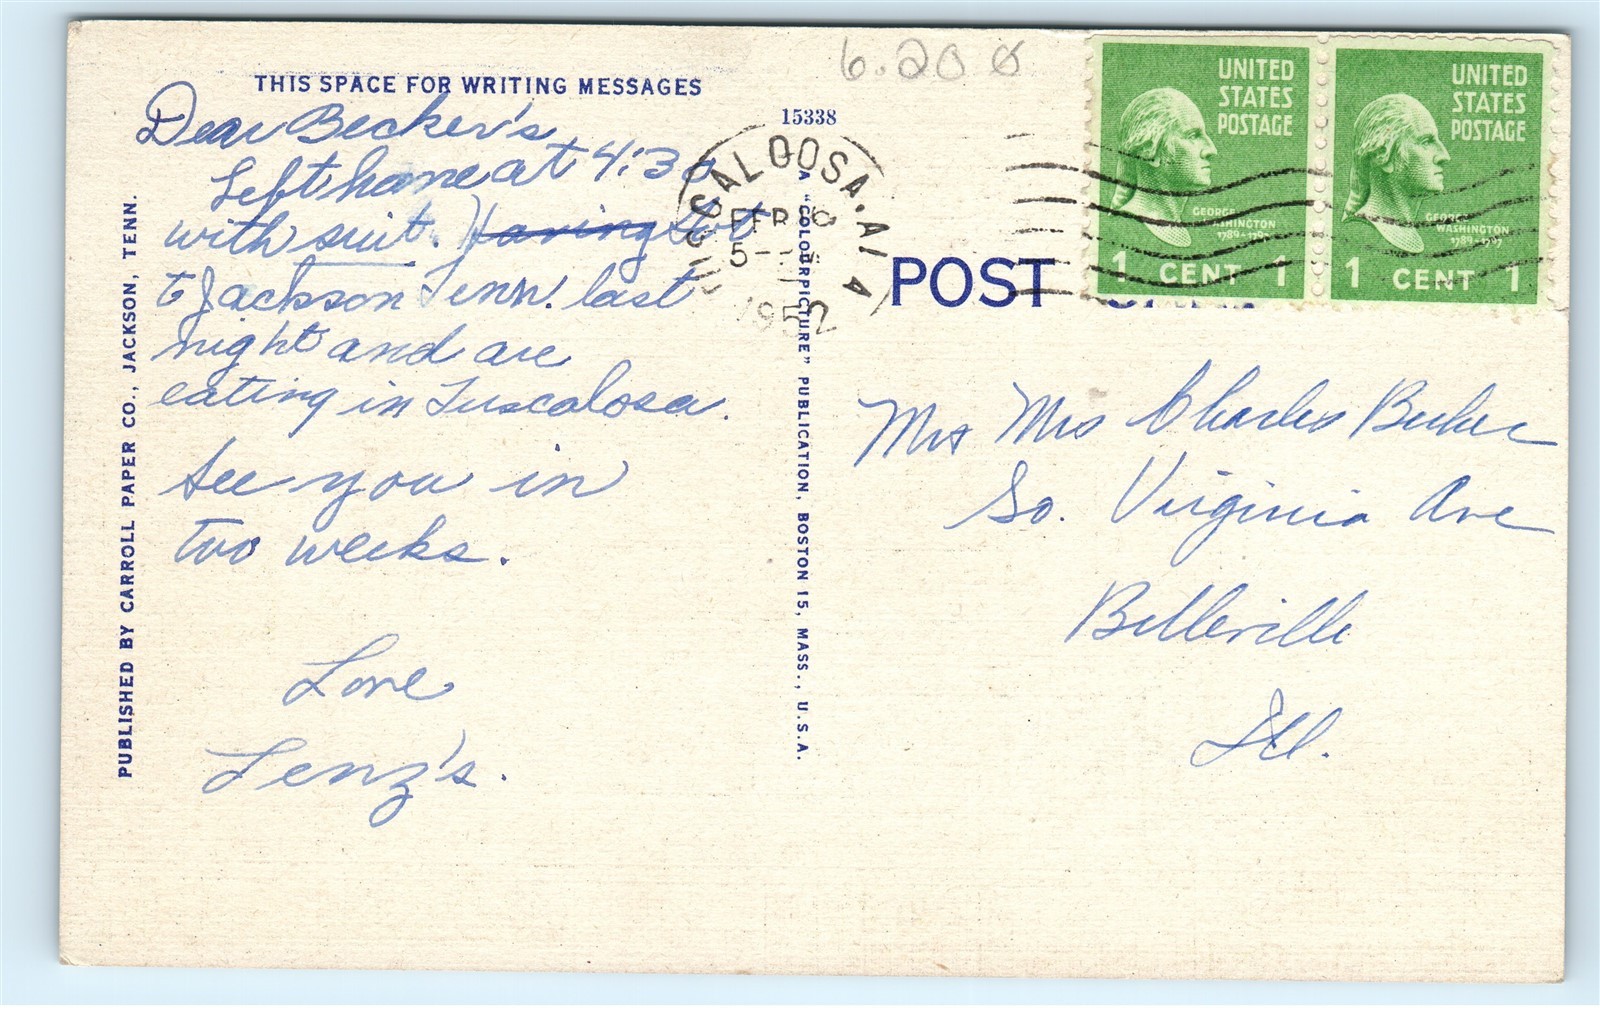 6.20 ø
THIS SPACE FOR WRITING MESSAGES
Dear Becker's
Left home at 4:30
with suit. Having Got
to Jackson Tenn. last
night and are
eating in Tuscalosa.
See you in
two weeks.
Love
Lenz's.
PUBLISHED BY CARROLL PAPER CO., JACKSON, TENN.
15338
A "COLOURPICTURE" PUBLICATION, BOSTON 15, MASS., U.S.A.
USCALOOSA, ALA
FEB 6
5-
1952
POST
UNITED
STATES
POSTAGE
GEORGE
WASHINGTON
1789-1797
1 CENT 1
UNITED
STATES
POSTAGE
GEORGE
WASHINGTON
1789-1797
1 CENT 1
Mr & Mrs Charles Becker
So. Virginia Ave
Belleville
Ill.